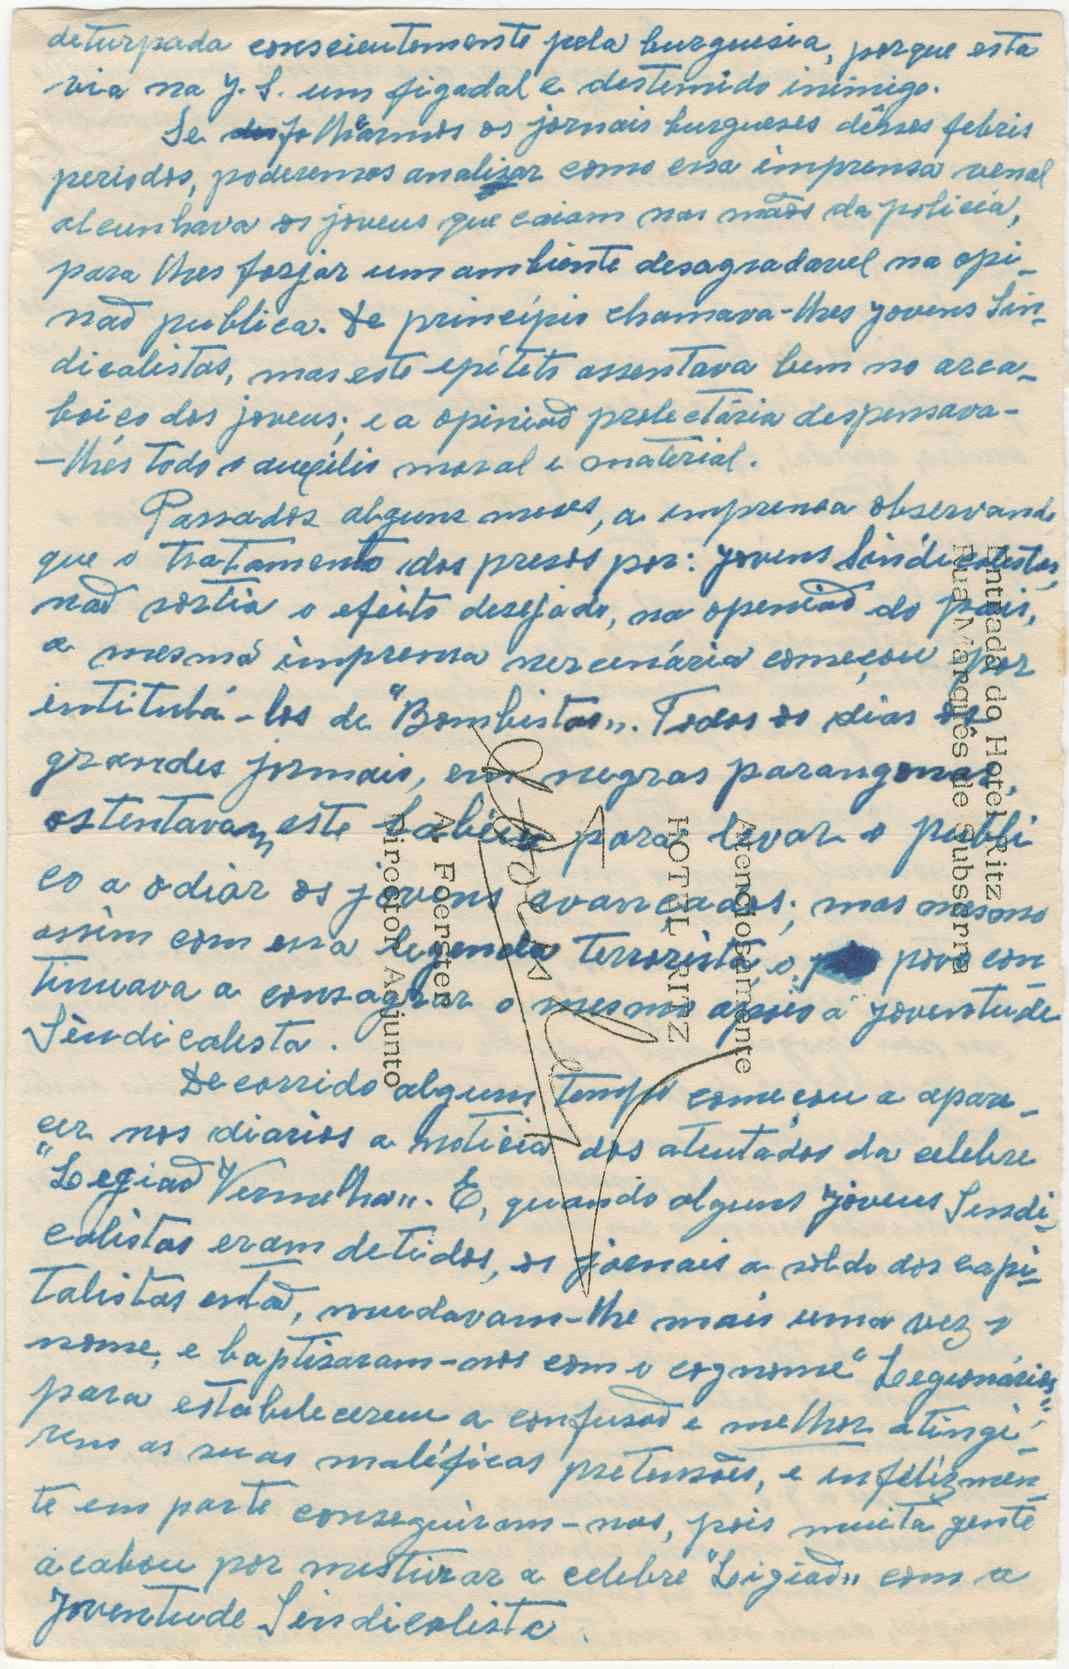 deturpada conscientemente pela burguesia, porque esta
via na J. S. um figadal e destemido inimigo.
Se folhearmos os jornais burgueses dêsses febris
periodos, poderemos analizar como essa imprensa venal
alcunhava os jovens que caiam nas mãos da policia,
para lhes forjar um ambiente desagradavel na opi-
nião publica. De princípio chamava-lhes Jovens Sin-
dicalistas, mas este epíteto assentava bem no arca-
boiço dos jovens; e a opinião proletária despensava-
-lhes todo o auxilio moral e material.
Passados alguns meses, a imprensa observando
que o tratamento dos presos por: Jovens Sindicalistas,
não sortia o efeito desejado, na openião do pais,
a mesma imprensa mercenária começou por
intitulá-los de "Bombistas". Todos os dias os
grandes jornais, em negras parangonas,
ostentavam este labéu para levar o publi
co a odiar os jovens avançados; mas mesmo
assim com essa legenda terrorista, o povo con
tinuava a consagrar o mesmo apoio á Joventude
Sindicalista.
Decorrido algum tempo começou a apare-
cer nos diarios a noticia dos atentados da celebre
"Legião Vermelha". E, quando alguns jovens Sindi-
calistas eram detidos, os jornais a sôldo dos capi-
talistas então, mudavam-lhe mais uma vez o
nome, e baptisaram-nos com o cognome "Legionários",
para estabelecerem a confusão e melhor atingi-
rem as suas maléficas pretensões, e infelizmen-
te em parte conseguiram-nas, pois muita gente
acabou por misturar a celebre "Ligião" com a
Joventude Sindicalista.
Entrada do Hotel Ritz
Rua Marquês de Subserra
Atenciosamente
HOTEL RITZ
A. Foerster
Director Adjunto